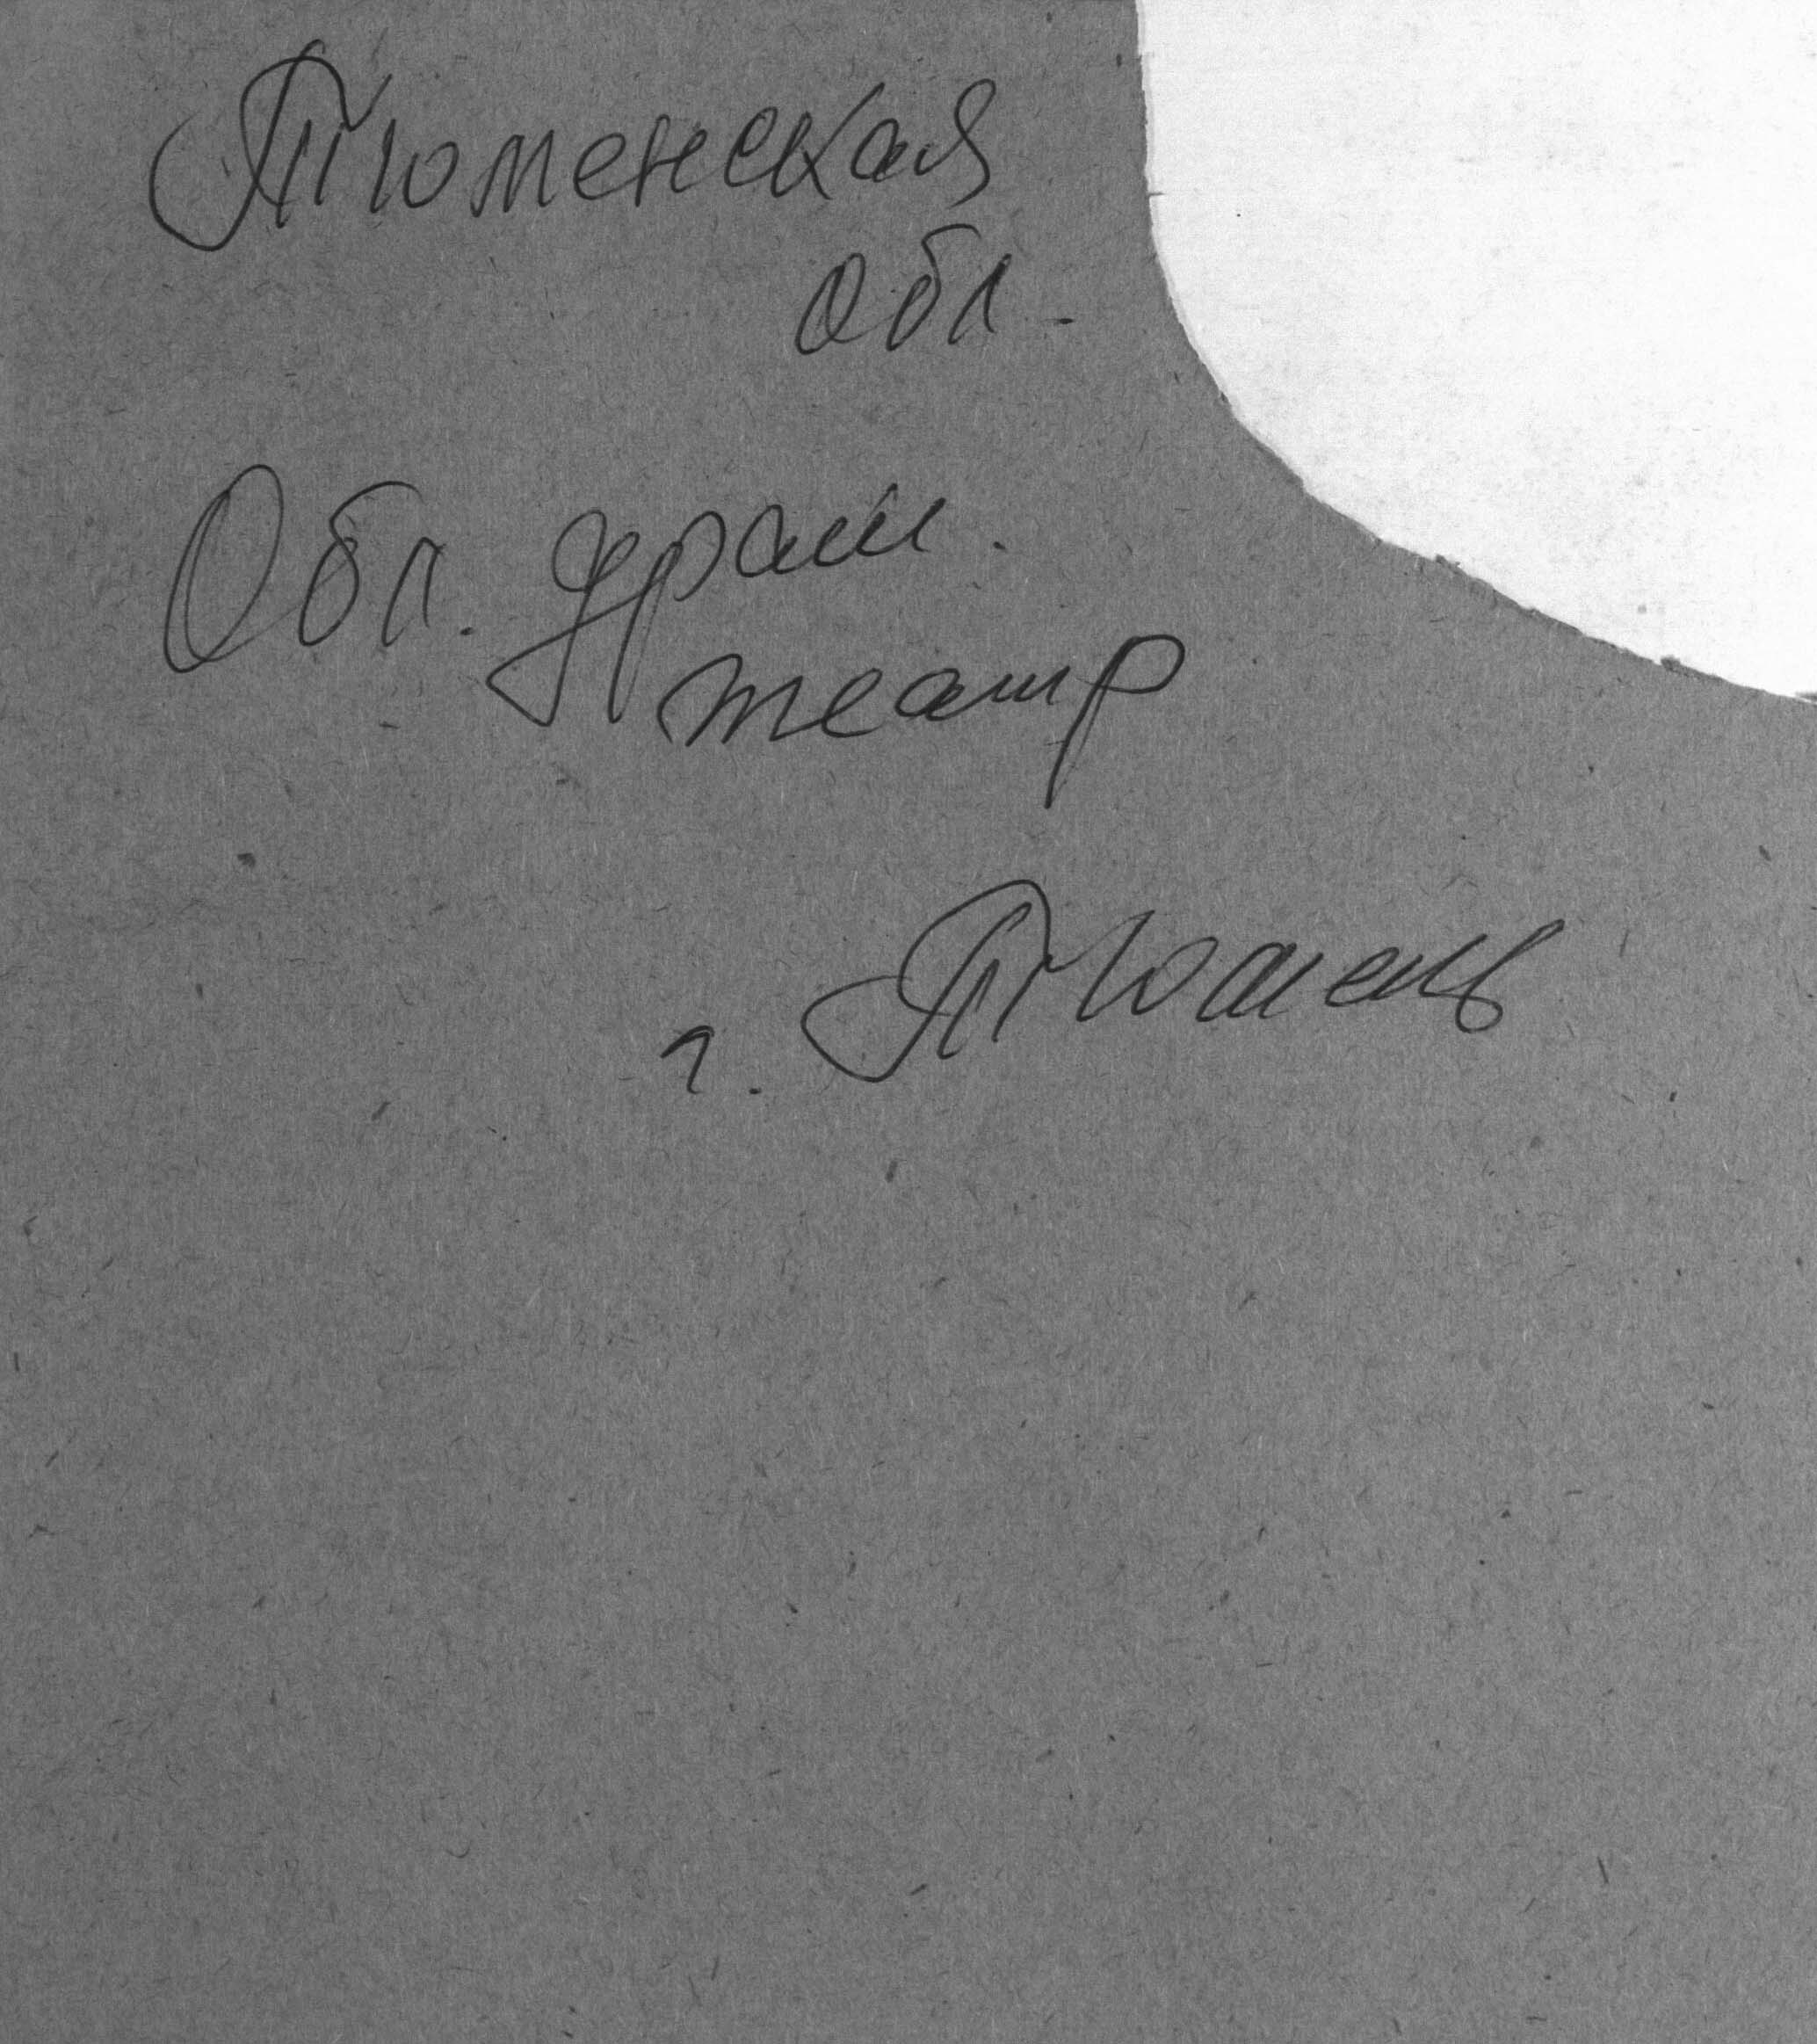 Тюменская
обл.
Обл. драм.
театр
г. Тюмень